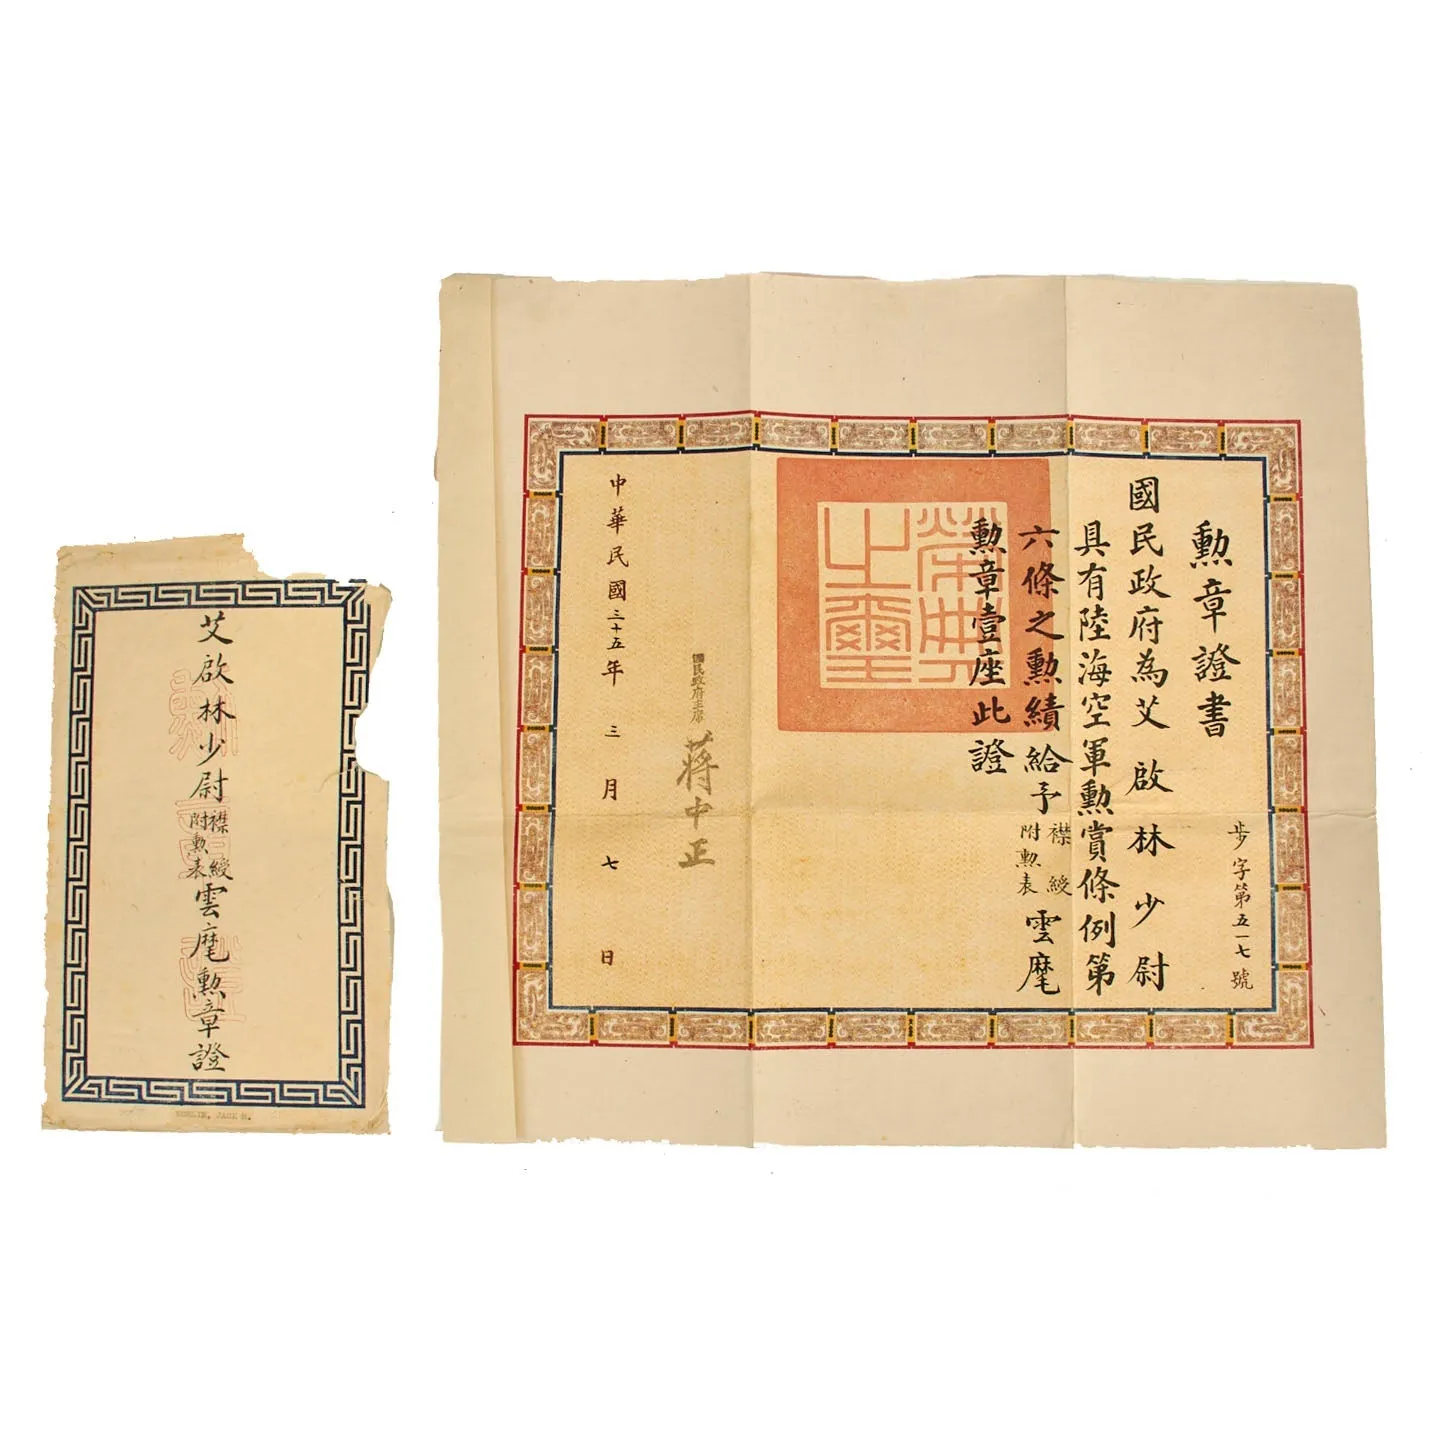 艾啟林少尉襟綬附勲表雲麾勲章證
勲章證書
步字第五一七號
國民政府為艾啟林少尉
具有陸海空軍勲賞條例第
六條之勲績給予襟綬附勲表雲麾
勲章壹座此證
榮典
之璽
國民政府主席蔣中正
中華民國三十五年三月七日